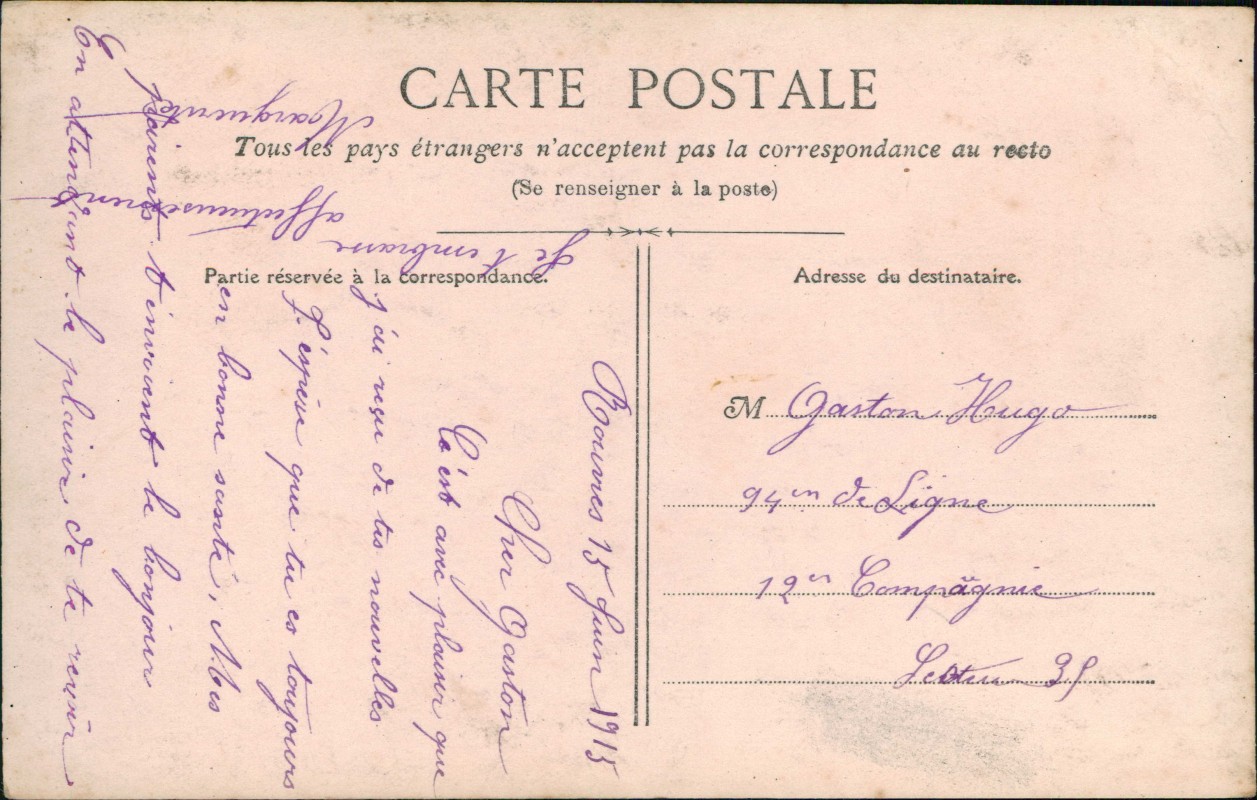 CARTE POSTALE
Tous les pays étrangers n'acceptent pas la correspondance au recto
(Se renseigner à la poste)
Partie réservée à la correspondance.
Adresse du destinataire.
15 Juin 1915
Cher Gaston
C'est avec plaisir que
j'ai reçu de tes nouvelles
J'espère que tu es toujours
en bonne santé, Mes
parents t'envoient le bonjour
En attendant le plaisir de te revoir
Je t'embrasse
affectueusement
Marguerite
M Gaston Hugo
94em de Ligne
12em Compagnie
Secteur 35